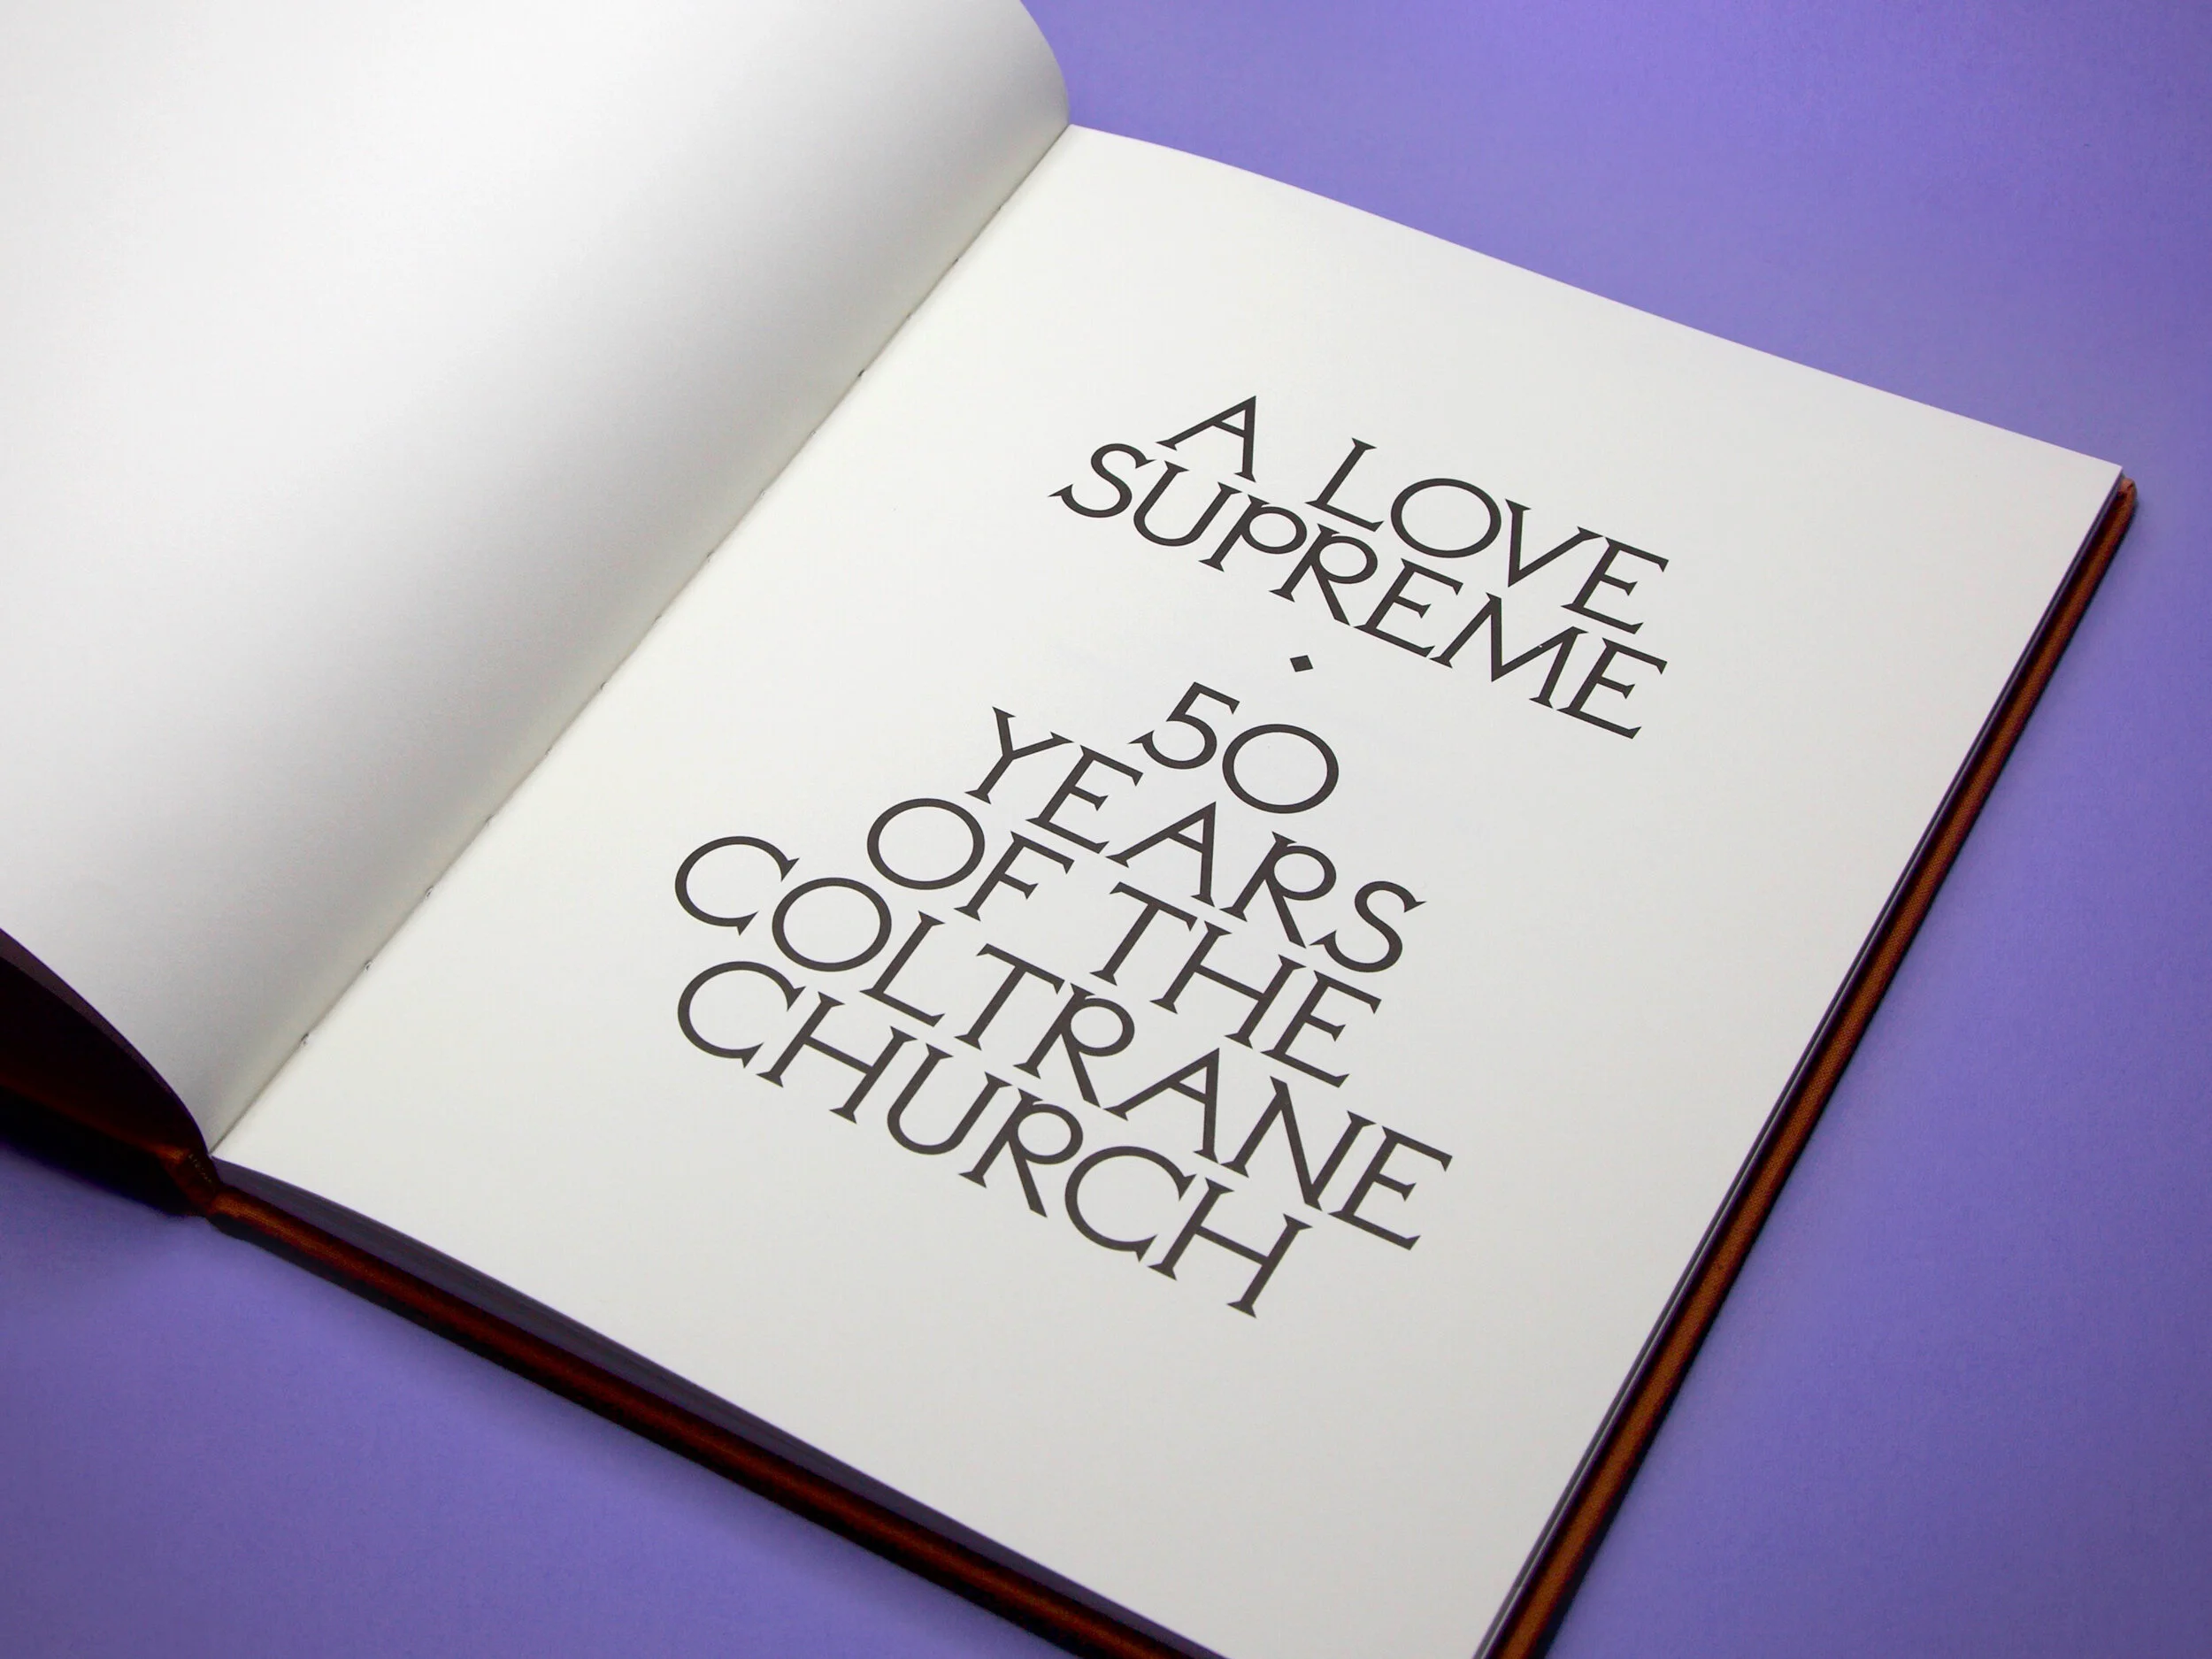 A LOVE
SUPREME
◆
50
YEARS
OF THE
COLTRANE
CHURCH